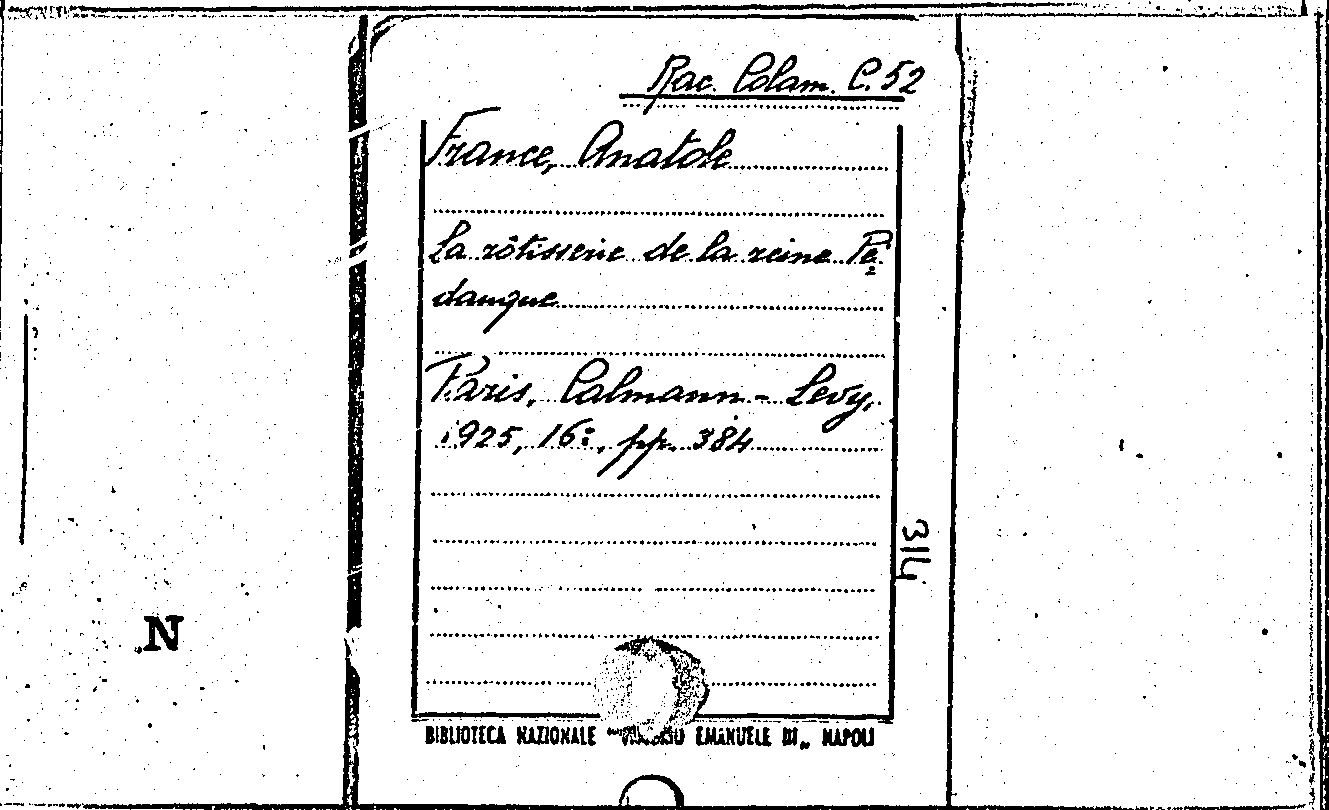 Rac. Colam. C. 52
France, Anatole
La rôtisserie de la reine Pé
dauque
Paris, Calmann-Levy,
1925, 16°, pp. 384
314
N
BIBLIOTECA NAZIONALE "VITTORIO EMANUELE III„ NAPOLI